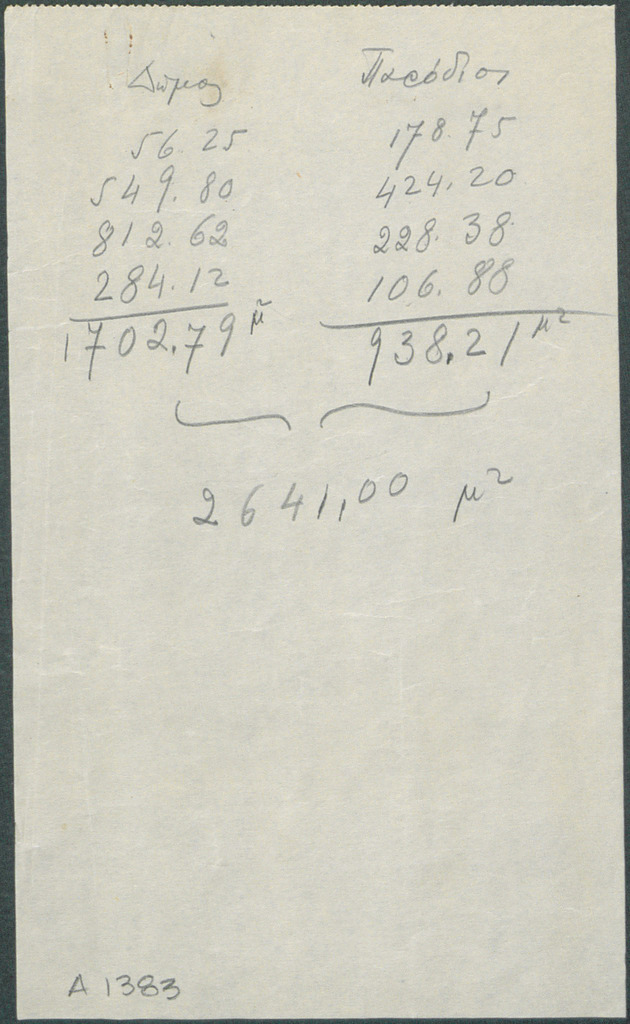 Δῆμος Παρόδιοι
56.25 178.75
549.80 424.20
812.62 228.38
284.12 106.88
1702.79 μ² 938.21 μ²
2641,00 μ²
A 1383